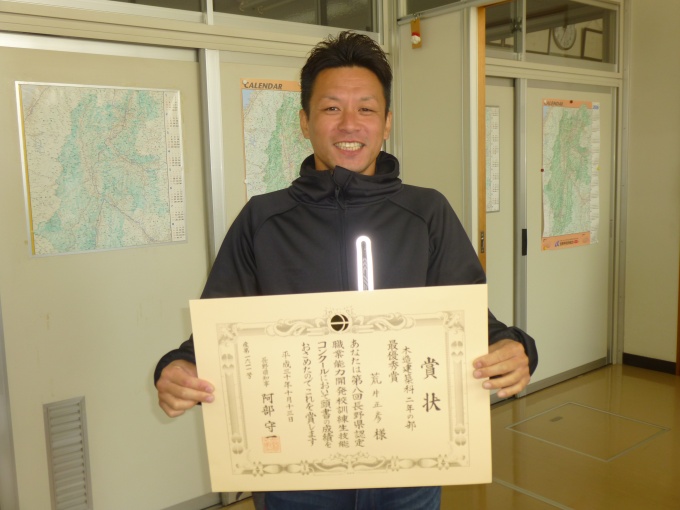 CALENDAR
CALENDAR
賞状
木造建築科二年の部
最優秀賞
荒井正彦 様
あなたは第八回長野県認定
職業能力開発校訓練生技能
コンクールにおいて頭書の成績を
おさめたのでこれを賞します
平成三十年十月十三日
長野県知事 阿部守一